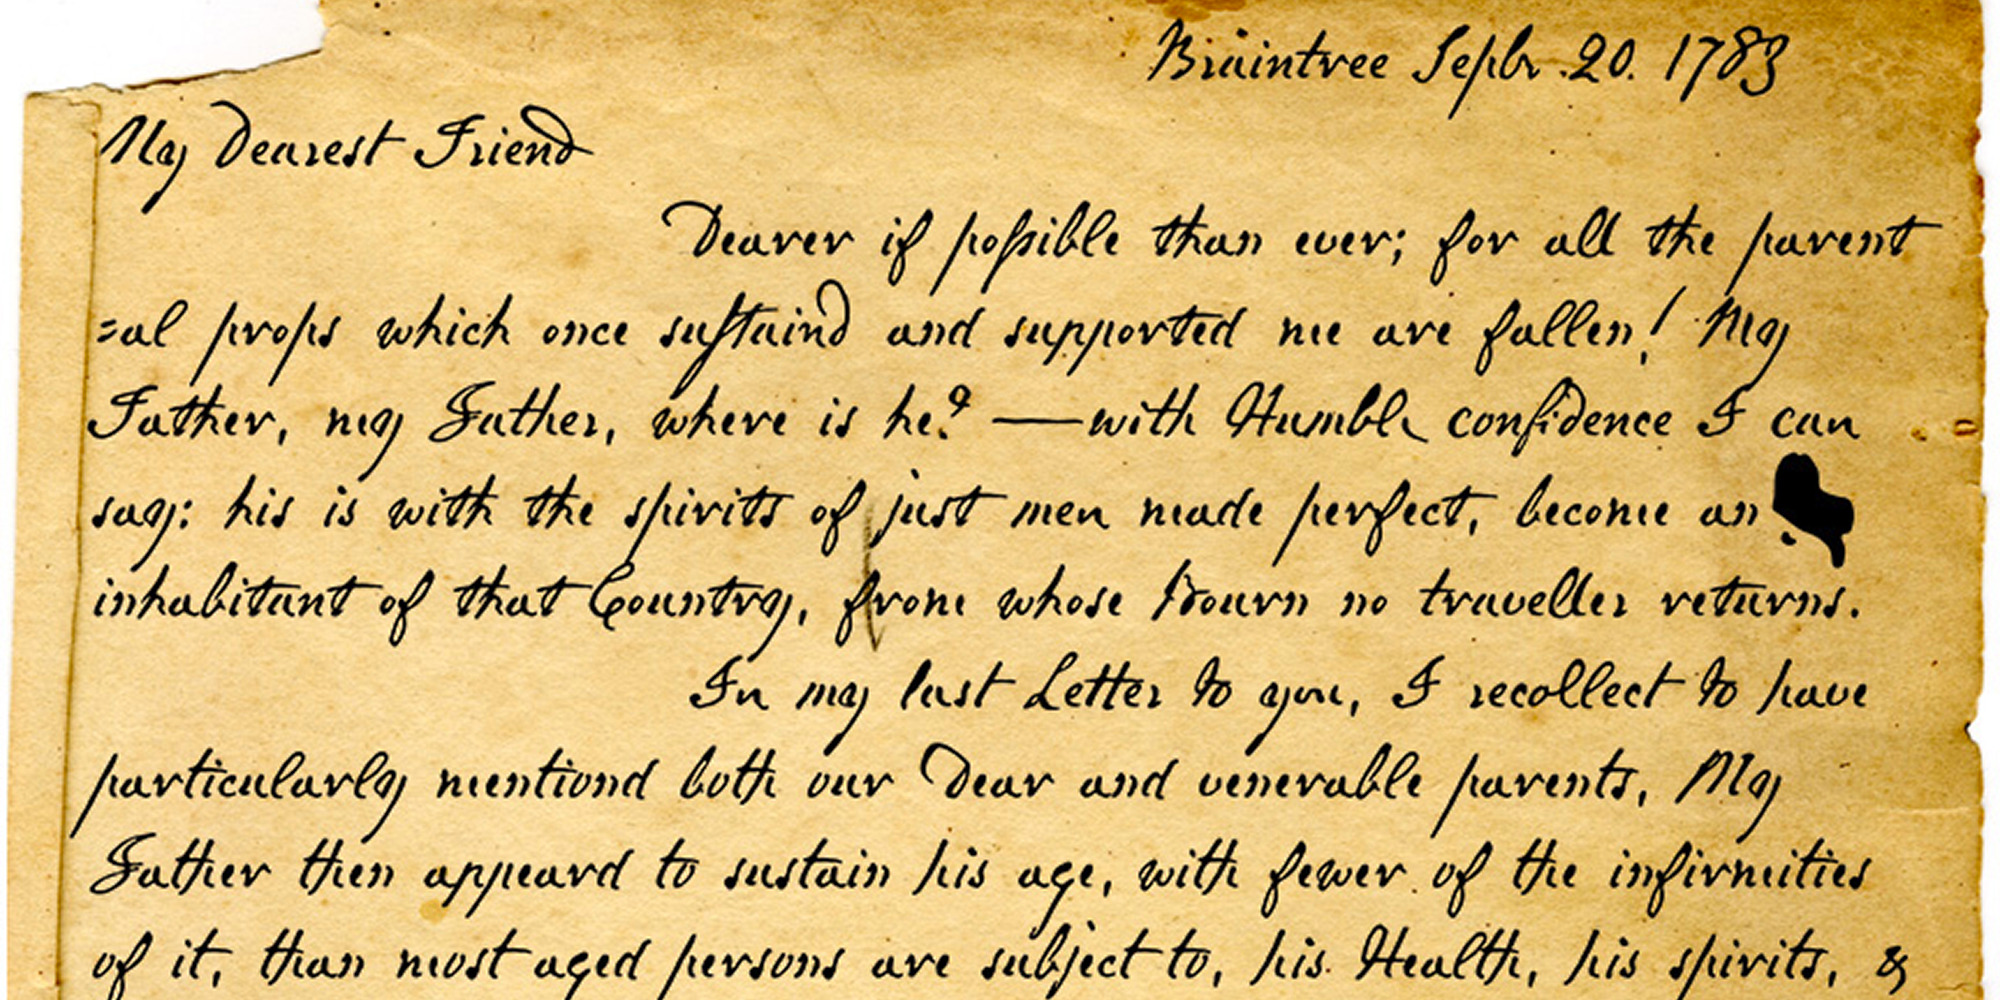 Braintree Sepbr. 20. 1783
My Dearest Friend
Dearer if poſsible than ever; for all the parent
=al props which once suſtaind and supported me are fallen! My
Father, my Father, where is he? —with Humble confidence I can
say: his is with the spirits of just men made perfect, become an
inhabitant of that Country, from whose Bourn no traveller returns.
In my last Letter to you, I recollect to have
particularly mentiond both our Dear and venerable parents, My
Father then appeard to sustain his age, with fewer of the infirmities
of it, than most aged persons are subject to, his Health, his spirits, &